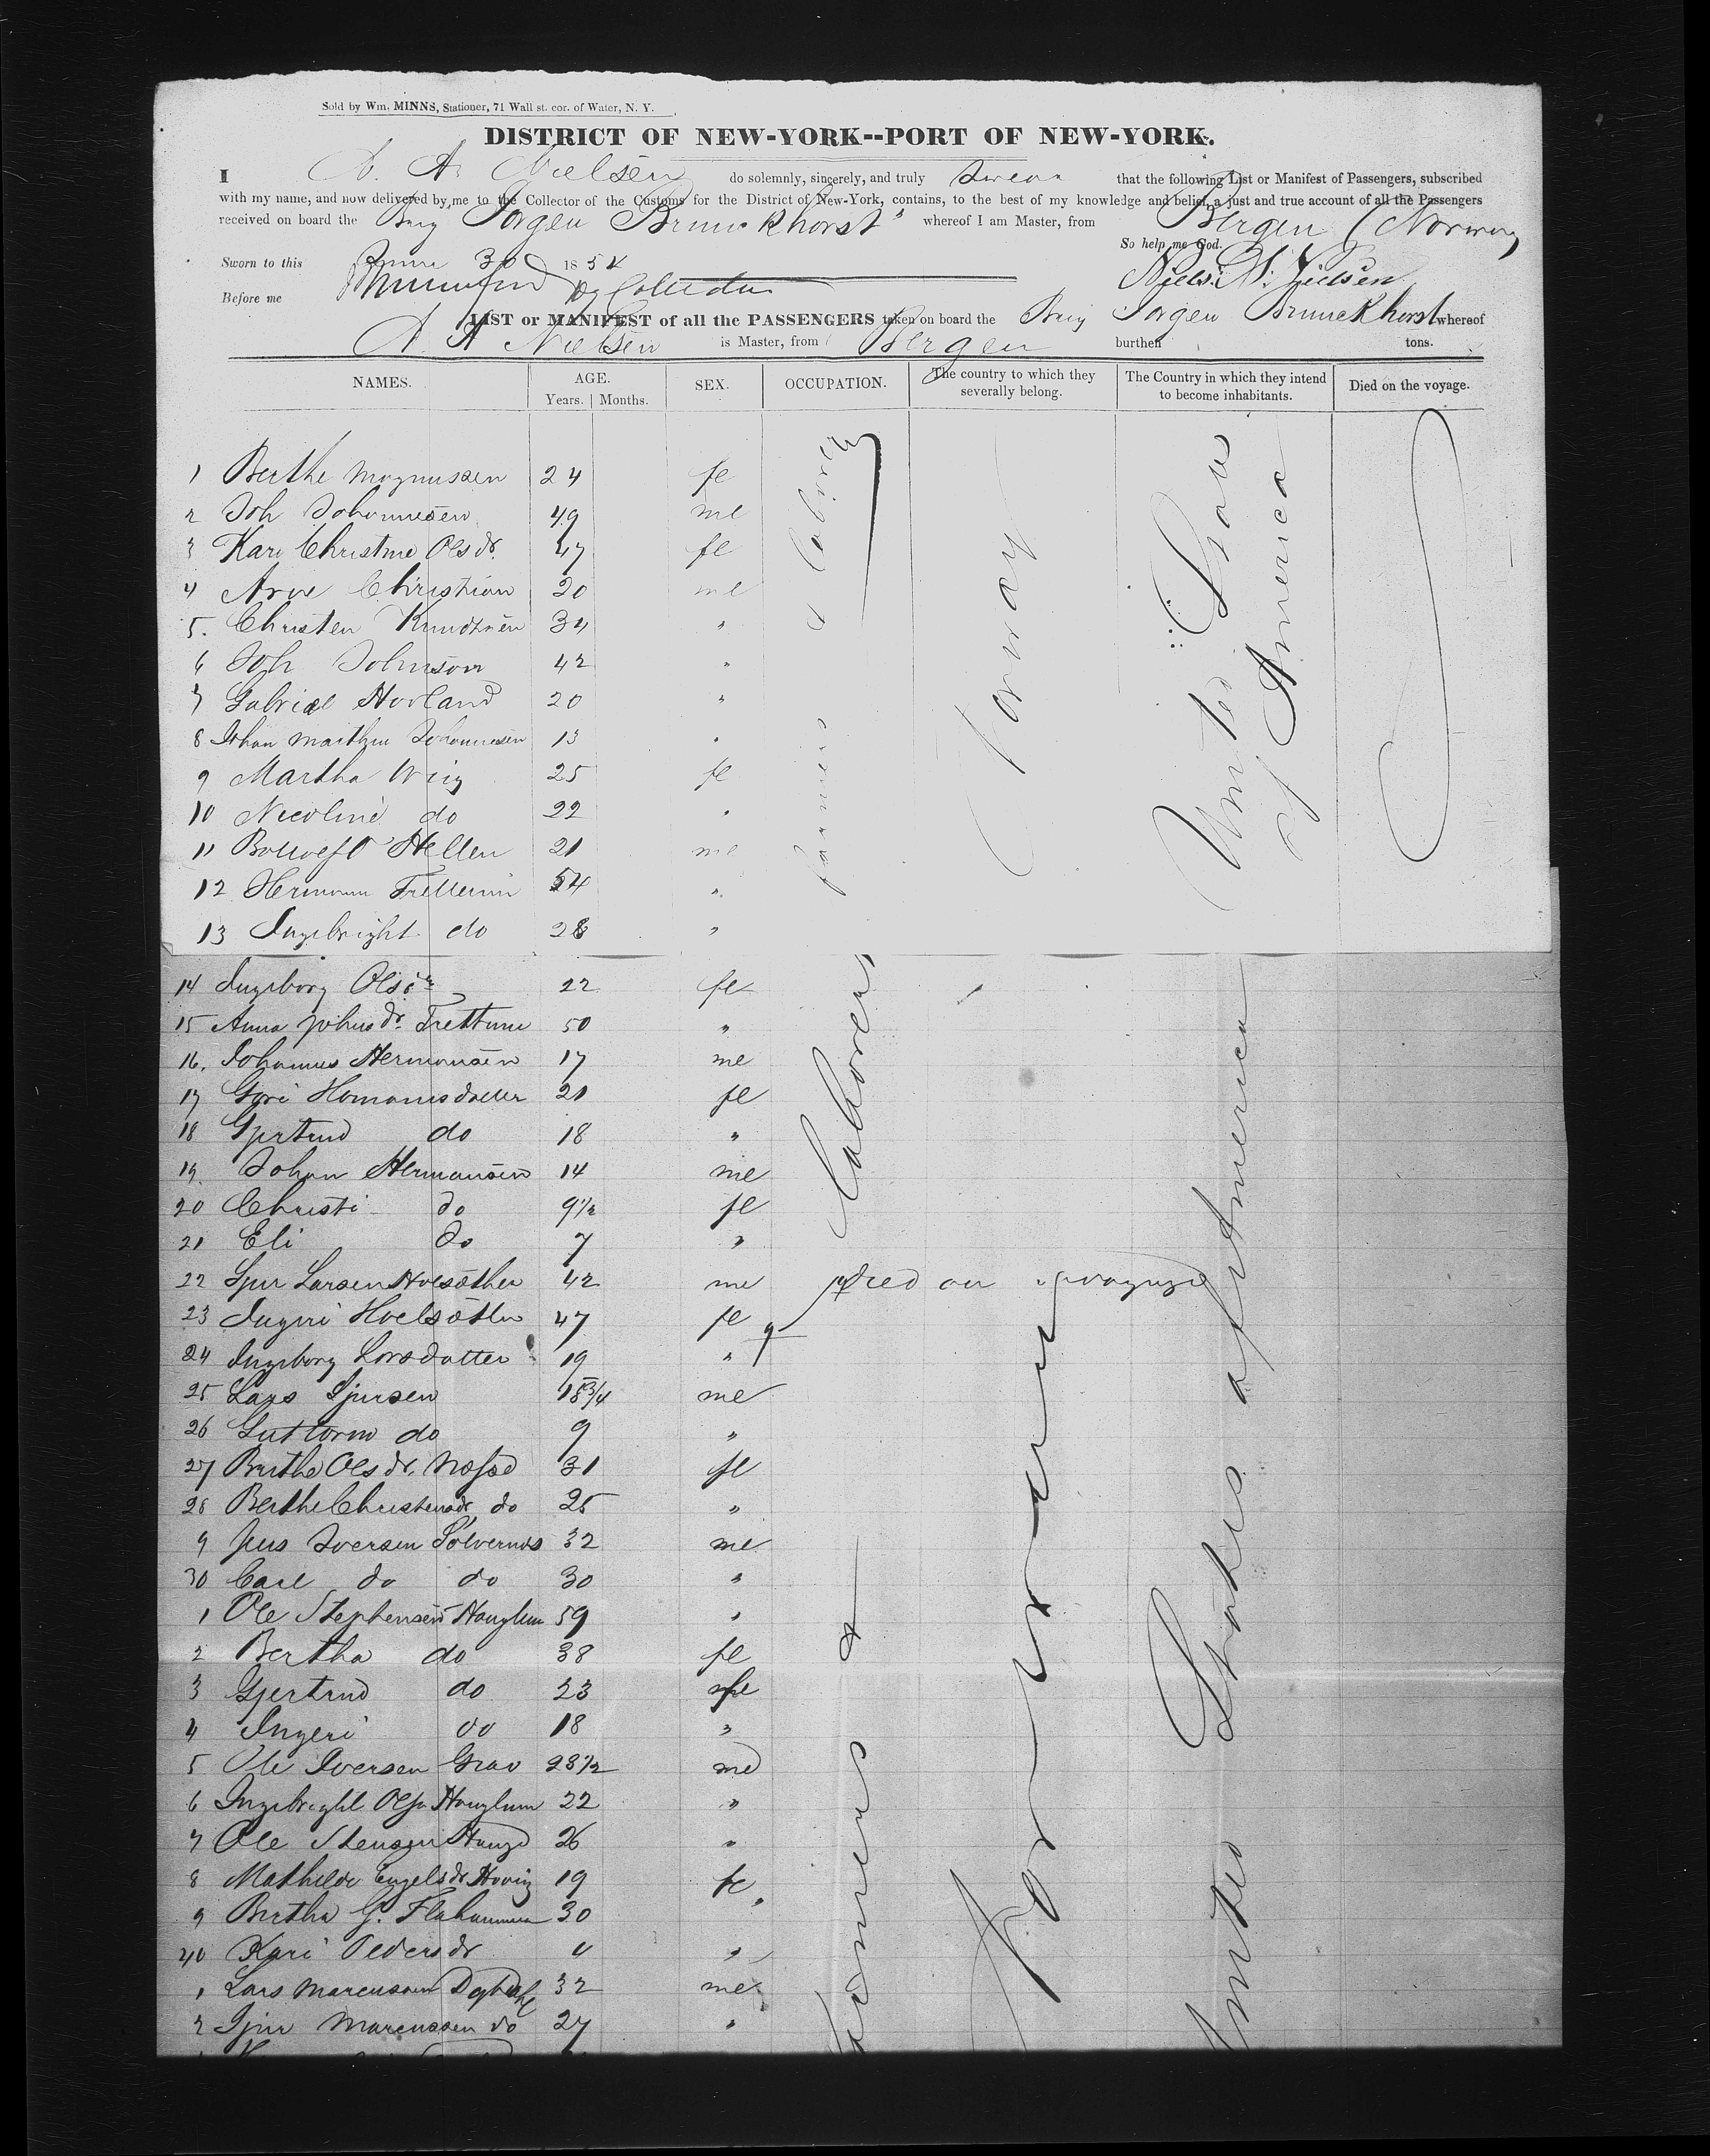 Sold by Wm. MINNS, Stationer, 71 Wall st. cor. of Water, N. Y.
DISTRICT OF NEW-YORK--PORT OF NEW-YORK.
I N. A. Nielsen do solemnly, sincerely, and truly swear that the following List or Manifest of Passengers, subscribed
with my name, and now delivered by me to the Collector of the Customs for the District of New-York, contains, to the best of my knowledge and belief, a just and true account of all the Passengers
received on board the Brig Jorgen Brunckhorst whereof I am Master, from Bergen (Norway
So help me God.
Sworn to this June 30 1854
Before me
LIST or MANIFEST of all the PASSENGERS taken on board the Brig Jorgen Brunckhorst whereof
A. A Nielsen is Master, from Bergen burthen tons.
NAMES. AGE. Years. Months. SEX. OCCUPATION. The country to which they severally belong. The Country in which they intend to become inhabitants. Died on the voyage.
1 Berthe Magnussen 24 fe
2 Joh Johannesen 49 me
3 Kari Christine Olsdr. 47 fe
4 Arve Christian 20 me
5. Christen Knudtsen 34 "
6 Joh Johnson 42 "
7 Gabriel Hovland 20 "
8 Johan Mathm Johannesen 13 "
9 Martha Wiig 25 fe
10 Nicoline do 22 "
11 Hellen 21 me
12 Hermann 54 "
13 Ingebright do 28 "
14 Ingeborg Olsdr 22 fe
15 Anna Johnsdr. Trettune 50 "
16. Johannes Hermansen 17 me
17 Gyri Homansdatter 21 fe
18 Gjertrud do 18 "
19. Johan Hermansen 14 me
20 Christi do 9 1/2 fe
21 Eli do 7 "
22 Sjur Larsen 42 me died on voyage
23 Ingeri 47 fe
24 Ingeborg Larsdatter 19 "
25 Lars Sjursen 18 3/4 me
26 Guttorm do 9 "
27 Berthe Olsdr. 31 fe
28 Berthe Christensdr do 25 "
9 Jens Iversen Solvernes 32 me
30 Carl do do 30 "
1 Ole Stephensen Hauglum 59 "
2 Bertha do 38 fe
3 Gjertrud do 23 fe
4 Ingeri do 18 "
5 Ole Iversen Grav 28 1/2 me
6 Ingebright Olsen Hauglum 22 "
7 Ole Stensen Hauge 26 "
8 Mathilde Engelsdr 19 fe
9 Bertha G. 30 "
40 Kari Pedersdr 4 "
1 Lars Marcussen 32 me
2 Sjur Marcussen do 27 "
farmers & Labourers
Norway
United States of America
farmers & Labourers
Norway
United States of America